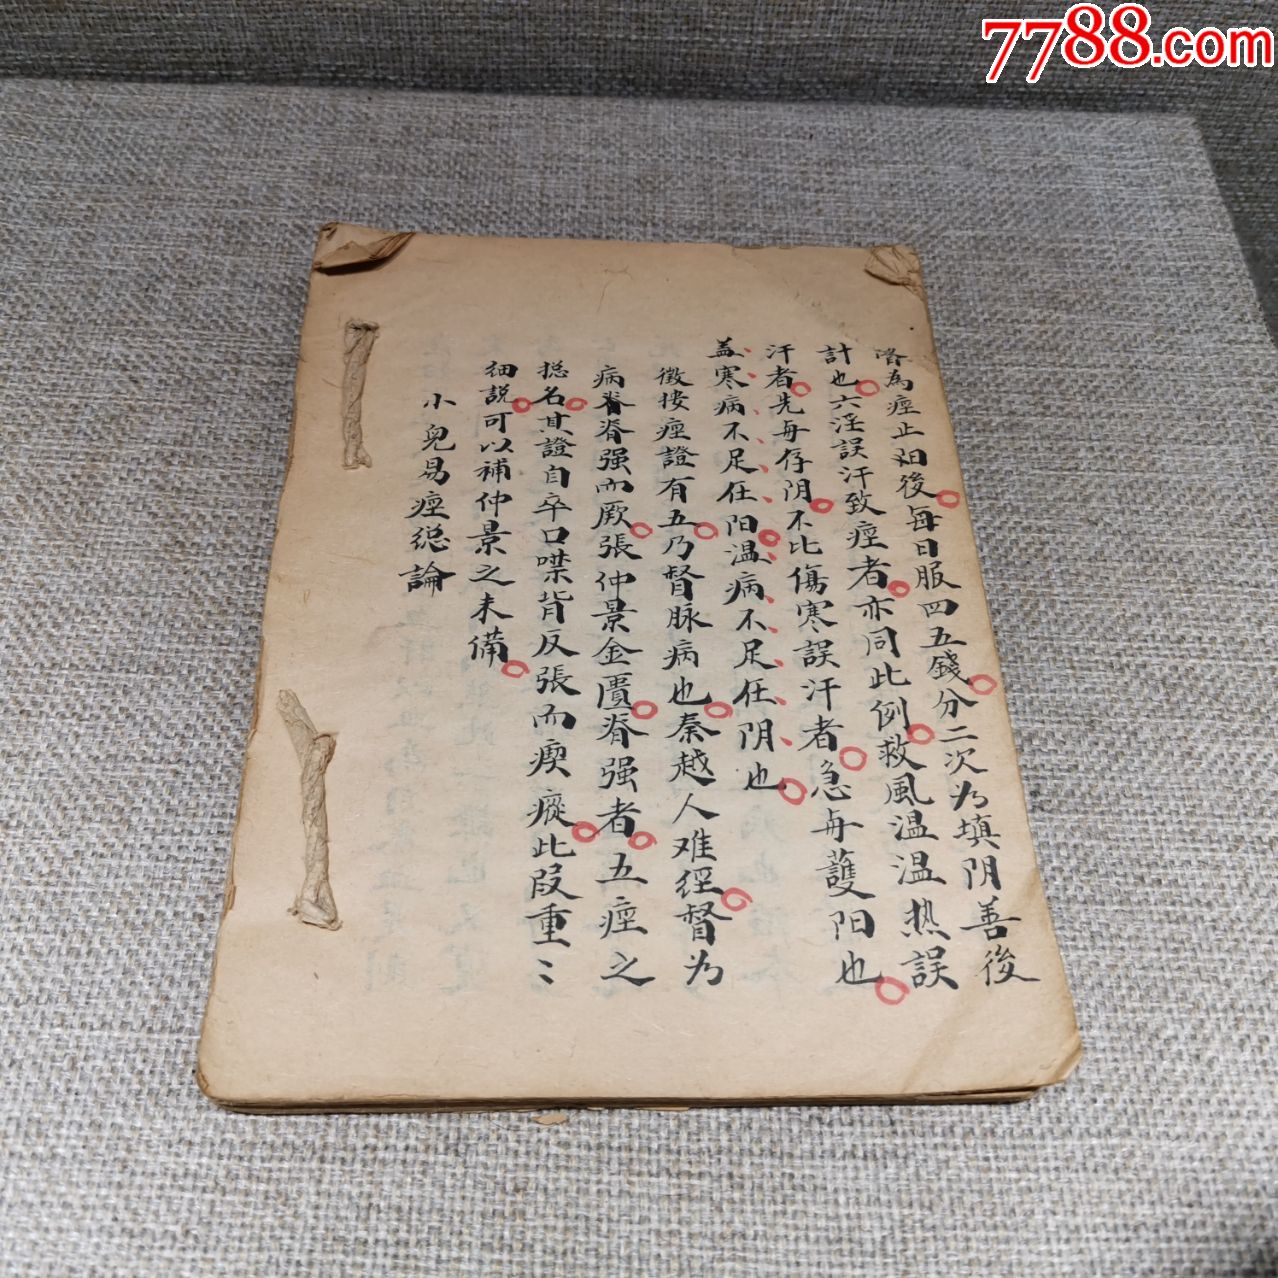 7788.com
為痙止后後每日服四五錢分二次为填阴善後
計也六淫誤汗致痙者亦同此例救風温温热誤
汗者先毋存阴不比傷寒誤汗者急毋護阳也
盖寒病不足任阳温病不足任阴也
徵按痙證有五乃督脉病也秦越人难經督为
病脊脊强而厥張仲景金匱脊强者五痙之
総名其證自卒口噤背反張而瘈瘲此段重〻
细説可以補仲景之未備
小兒易痙総論